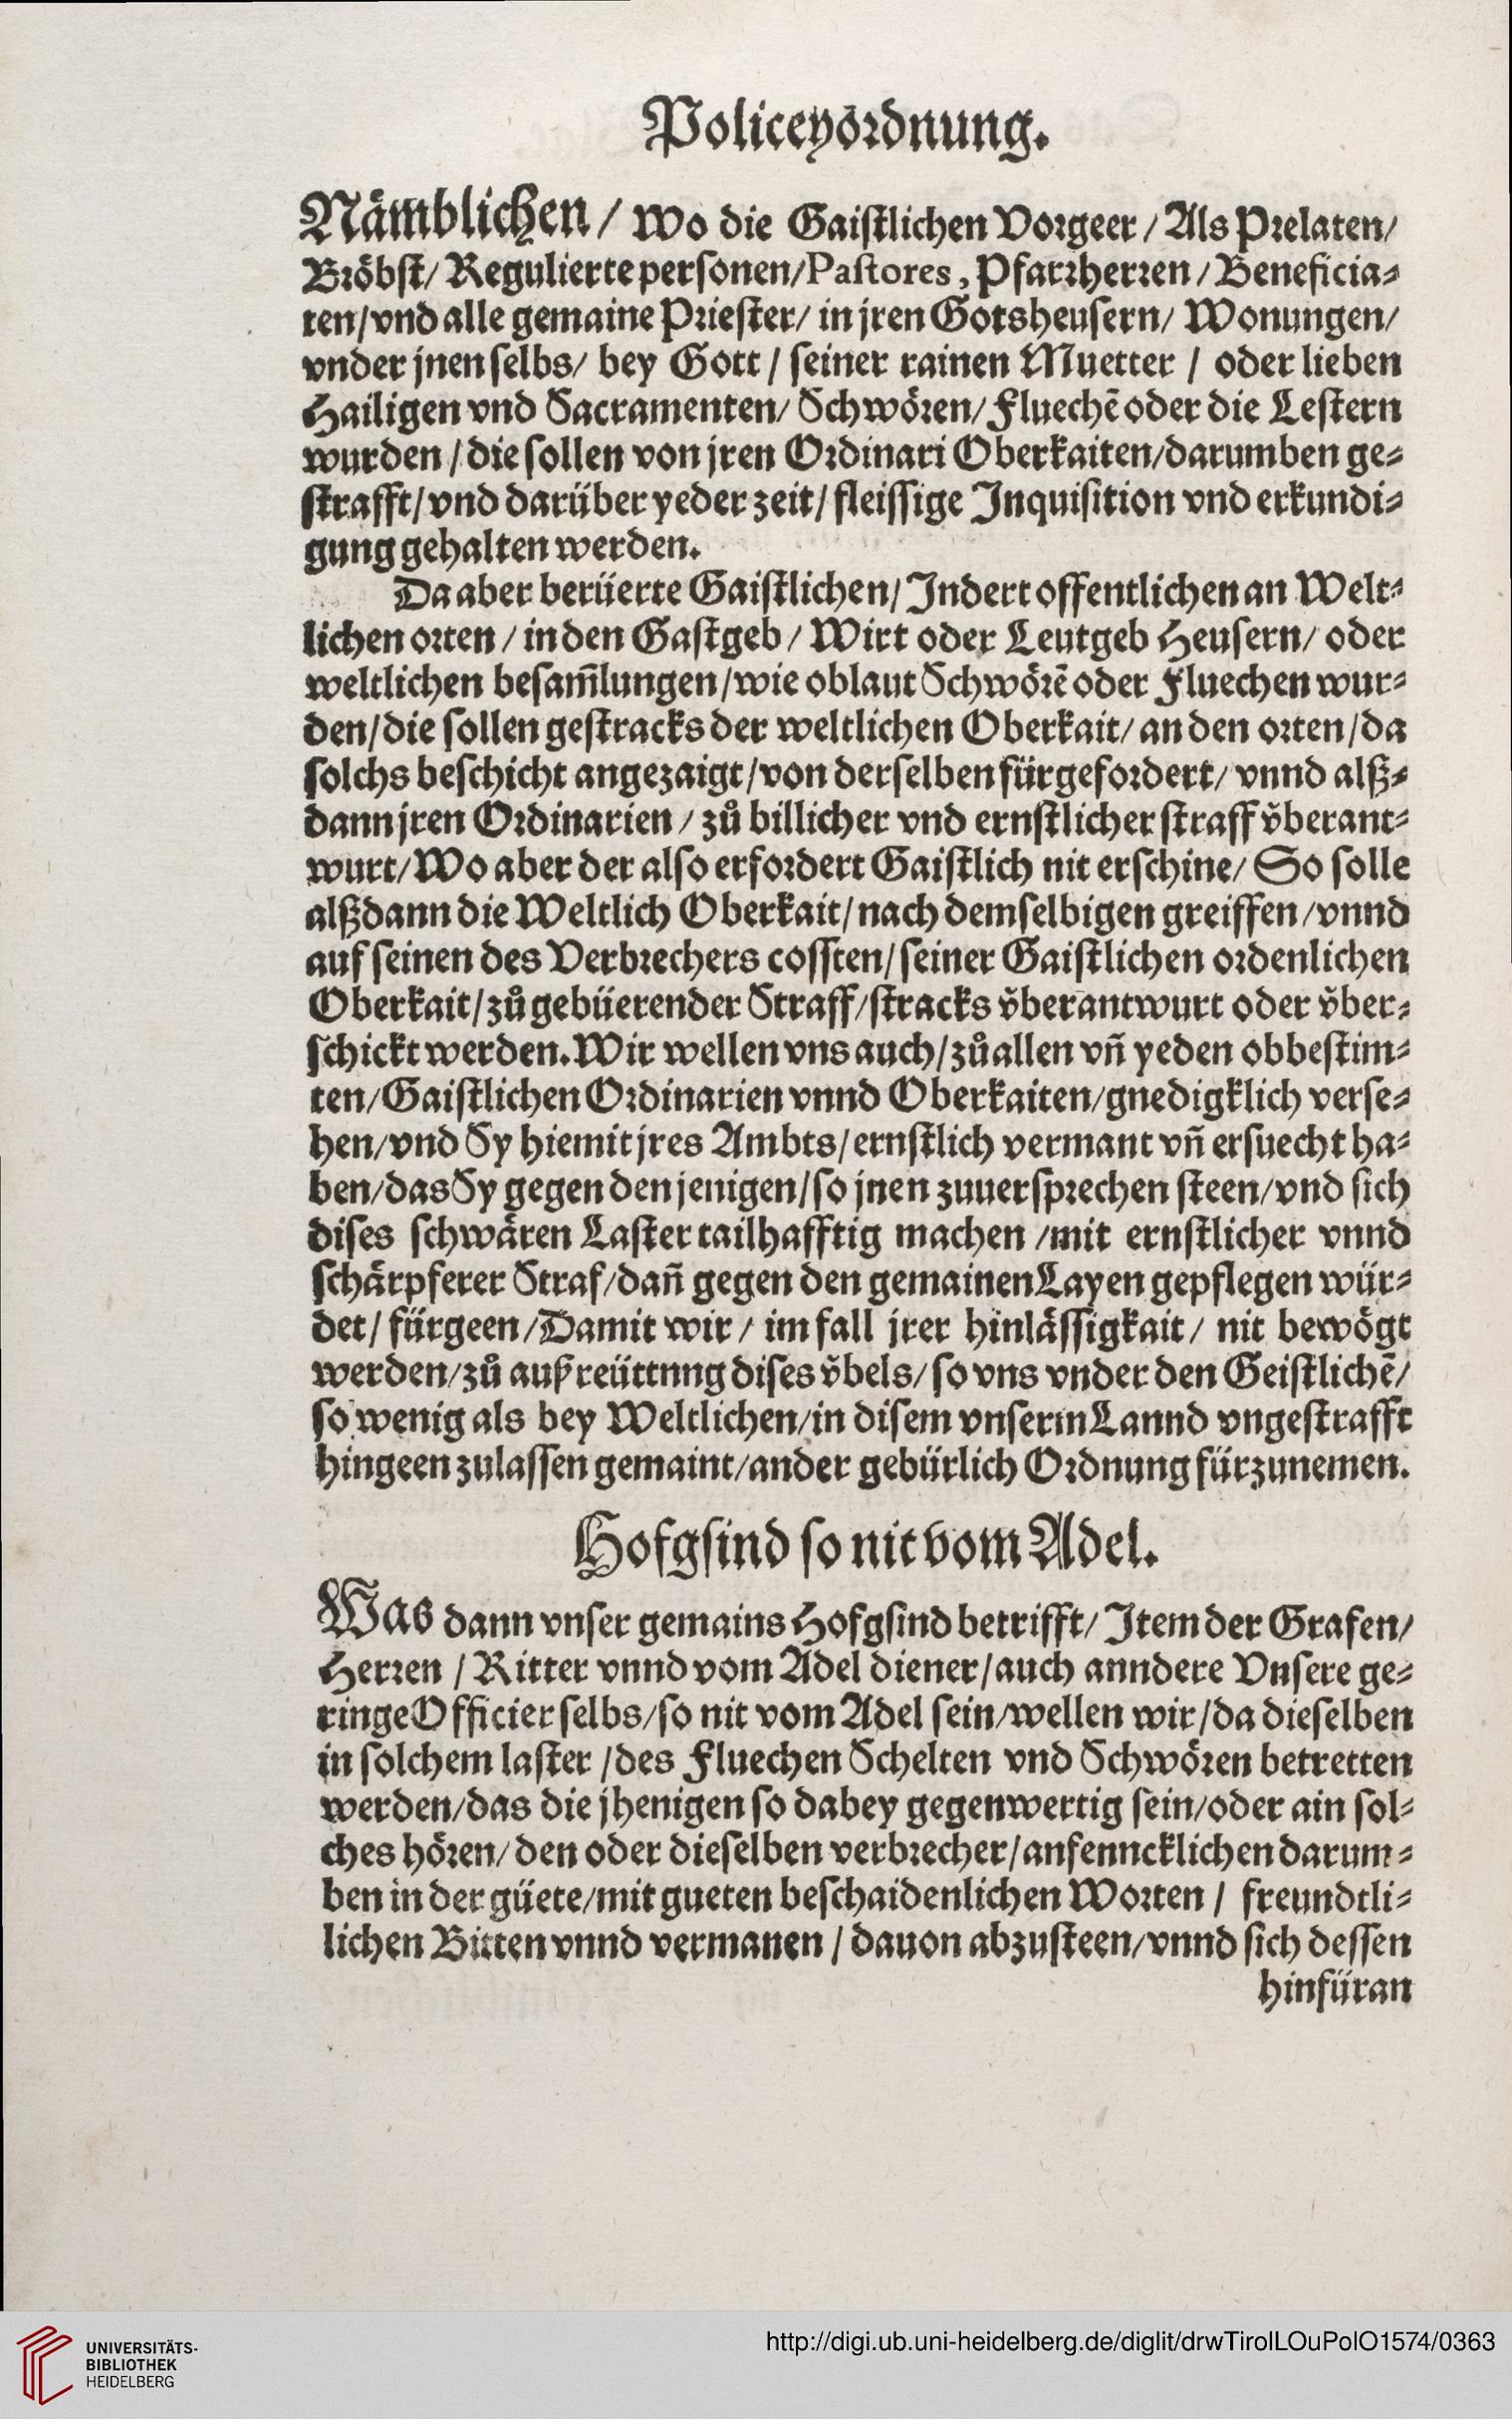 Policeyordnung.
Nämblichen / wo die Gaistlichen Vorgeer / Als Prelaten/
Bröbst/ Regulierte personen/Pastores, Pfarrherren / Beneficia-
ten/vnd alle gemaine Priester/ in jren Gotsheusern/ Wonungen/
vnder jnen selbs/ bey Gott / seiner rainen Muetter / oder lieben
Hailigen vnd Sacramenten/ Schwören/ Fluechē oder die Lestern
wurden / die sollen von jren Ordinari Oberkaiten/darumben ge-
strafft/vnd darüber yeder zeit/ fleissige Inquisition vnd erkundi-
gung gehalten werden.
Da aber berüerte Gaistlichen/ Indert offentlichen an Welt-
lichen orten / in den Gastgeb / Wirt oder Leutgeb Heusern/ oder
weltlichen besam̄lungen/wie oblaut Schwörē oder Fluechen wur-
den/die sollen gestracks der weltlichen Oberkait/ an den orten/da
solchs beschicht angezaigt/von derselben fürgefordert/ vnnd alß-
dann jren Ordinarien / zů billicher vnd ernstlicher straff v̈berant-
wurt/Wo aber der also erfordert Gaistlich nit erschine/ So solle
alßdann die Weltlich Oberkait/nach demselbigen greiffen/vnnd
auf seinen des Verbrechers cossten/seiner Gaistlichen ordenlichen
Oberkait/zů gebüerender Straff/stracks v̈berantwurt oder v̈ber-
schickt werden. Wir wellen vns auch/zů allen vn̄ yeden obbestim-
ten/Gaistlichen Ordinarien vnnd Oberkaiten/gnedigklich verse-
hen/vnd Sy hiemit jres Ambts/ernstlich vermant vn̄ ersuecht ha-
ben/das Sy gegen den jenigen/so jnen zuuersprechen steen/vnd sich
dises schwären Laster tailhafftig machen /mit ernstlicher vnnd
schärpferer Straf/dan̄ gegen den gemainen Layen gepflegen wür-
det/ fürgeen/Damit wir / im fall jrer hinlässigkait/ nit bewögt
werden/zů außreüttnng dises v̈bels/so vns vnder den Geistlichē/
so wenig als bey Weltlichen/in disem vnserm Lannd vngestrafft
hingeen zulassen gemaint/ander gebürlich Ordnung fürzunemen.
Hofgsind so nit vom Adel.
Was dann vnser gemains Hofgsind betrifft/ Item der Grafen/
Herren / Ritter vnnd vom Adel diener/auch anndere Vnsere ge-
ringe Officier selbs/so nit vom Adel sein/wellen wir/da dieselben
in solchem laster /des Fluechen Schelten vnd Schwören betretten
werden/das die jhenigen so dabey gegenwertig sein/oder ain sol-
ches hören/den oder dieselben verbrecher/anfenncklichen darum-
ben in der güete/mit gueten beschaidenlichen Worten / freundtli-
lichen Bitten vnnd vermanen / dauon abzusteen/vnnd sich dessen
hinfüran
UNIVERSITÄTS-
BIBLIOTHEK
HEIDELBERG
http://digi.ub.uni-heidelberg.de/diglit/drwTirolLOuPolO1574/0363